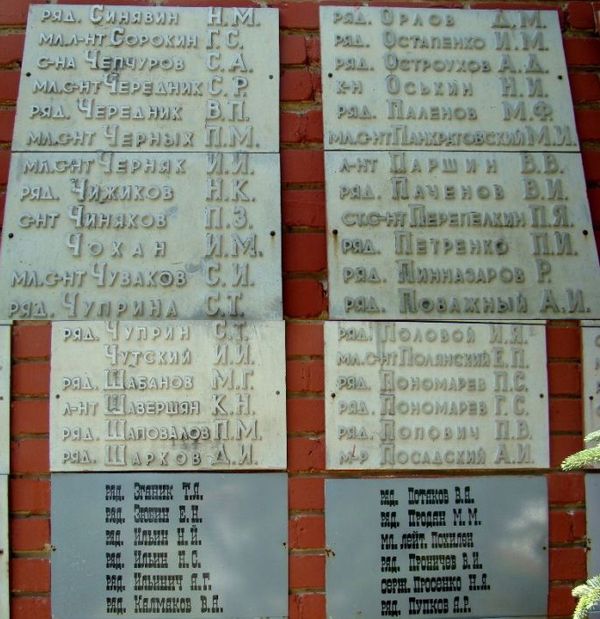 ряд. Синявин Н.М.
мл.л-нт Сорокин Г.С.
с-на Чепчуров С.А.
мл.с-нт Чередник С.Р.
ряд. Чередник В.П.
мл.с-нт Черных П.М.
мл.с-нт Черняк И.И.
ряд. Чижиков Н.К.
с-нт Чиняков П.З.
Чохан И.М.
мл.с-нт Чуваков С.И.
ряд. Чуприна С.Т.
ряд. Чуприн С.Т.
Чутский И.И.
ряд. Шабанов М.Г.
л-нт Шавершян К.Н.
ряд. Шаповалов П.М.
ряд. Шархов Д.И.
ряд. Зтаник Т.Я.
ряд. Зюбин Е.Н.
ряд. Ильин Н.Й
ряд. Ильин П.С.
ряд. Ильинич А.Г.
ряд. Калмаков В.А.
ряд. Орлов Д.М.
ряд. Остапенко И.М.
ряд. Остроухов А.Д.
к-н Оськин Н.И.
ряд. Паленов М.Ф.
мл.с-нт Панкратовский М.И.
л-нт Паршин В.В.
ряд. Паченов В.И.
ст.с-нт Перепелкин П.Я.
ряд. Петренко П.И.
ряд. Пинназаров Р.
ряд. Поважный А.И.
ряд. Половой И.Я.
мл.с-нт Полянский Е.П.
ряд. Пономарев П.С.
ряд. Пономарев Г.С.
ряд. Попович П.В.
м-р Посадский А.И.
ряд. Потяков В.А.
ряд. Продан М.М.
мл. лейт. Понилян
ряд. Проничев В.И.
серж. Просенко Н.Я.
ряд. Пупков А.Р.